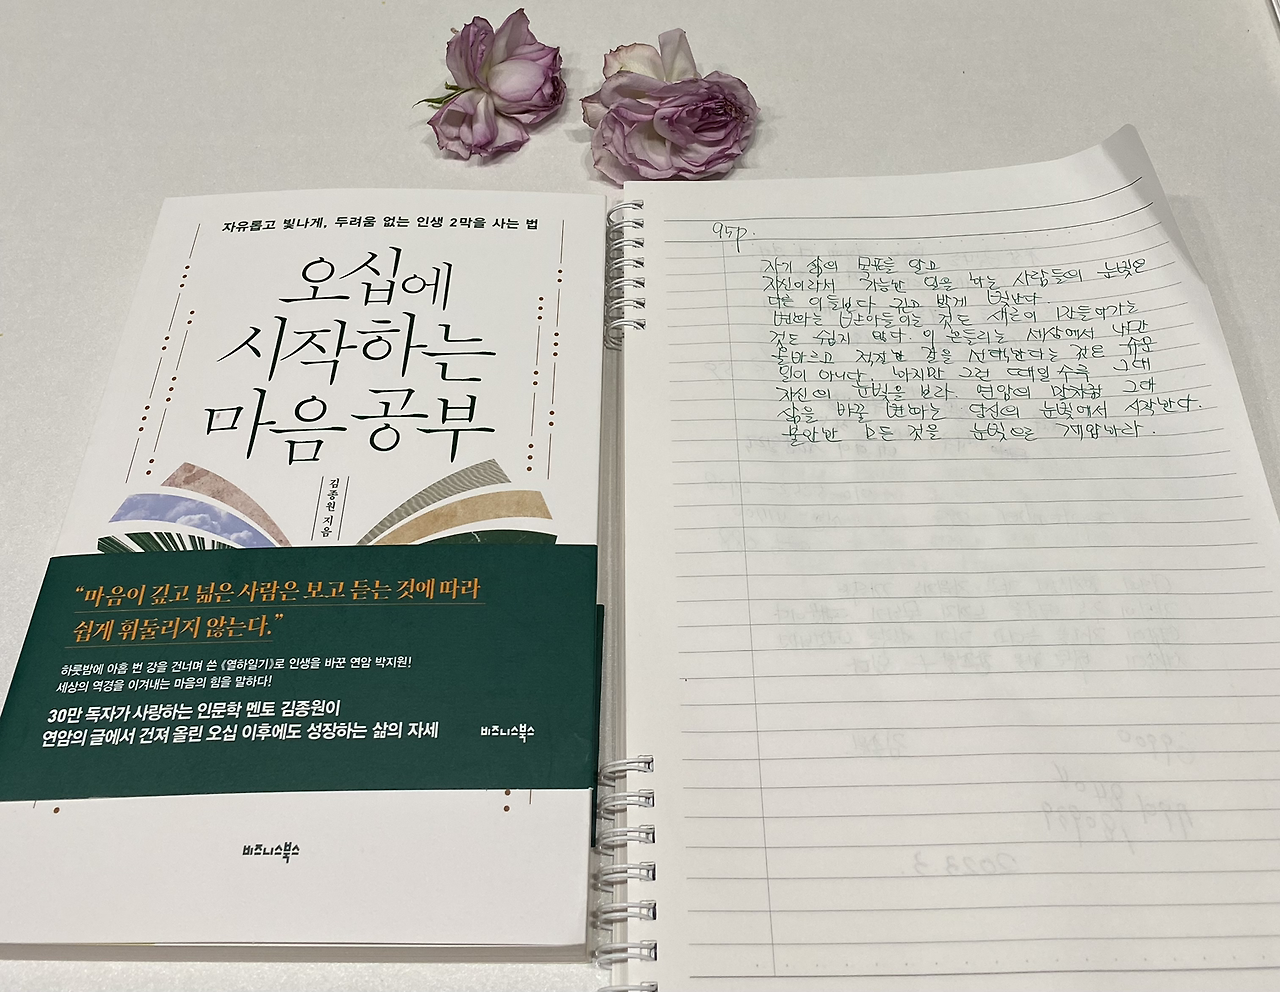 자유롭고 빛나게, 두려움 없는 인생 2막을 사는 법
오십에
시작하는
마음 공부
김종원 지음
“마음이 깊고 넓은 사람은 보고 듣는 것에 따라
쉽게 휘둘리지 않는다.”
하룻밤에 아홉 번 강을 건너며 쓴 《열하일기》로 인생을 바꾼 연암 박지원!
세상의 역경을 이겨내는 마음의 힘을 말하다!
30만 독자가 사랑하는 인문학 멘토 김종원이
연암의 글에서 건져 올린 오십 이후에도 성장하는 삶의 자세
비즈니스북스
비즈니스북스
95p.
자기 삶의 목표를 알고
자신이라서 가능한 일을 하는 사람들의 눈빛은
다른 이들보다 깊고 밝게 빛난다.
변화는 받아들이는 것도 새로이 만들어가는
것도 쉽지 않다. 이 흔들리는 세상에서 나만
올바르고 적절한 길을 선택한다는 것은 쉬운
일이 아니다. 하지만 그런 때일수록 그대
자신의 눈빛을 보라. 연암의 말처럼 그대
삶을 바꿀 변화는 당신의 눈빛에서 시작한다.
불안한 모든 것을 눈빛으로 제압하라.